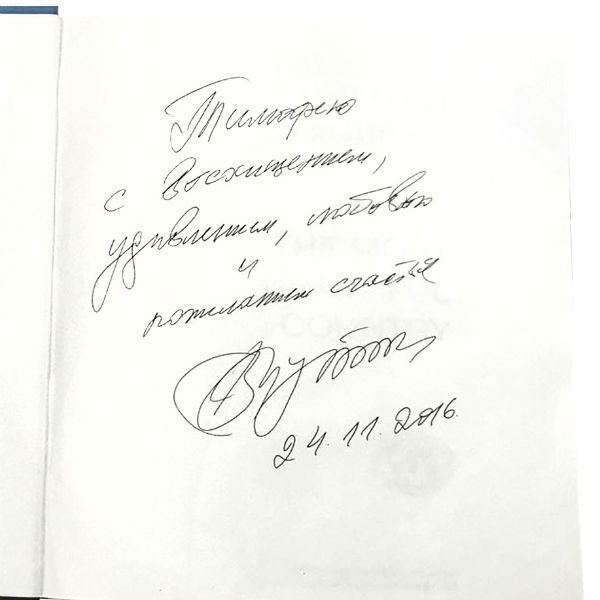 Тимофею
с восхищением,
удивлением, любовью
и
пожеланием счастья
24.11.2016.